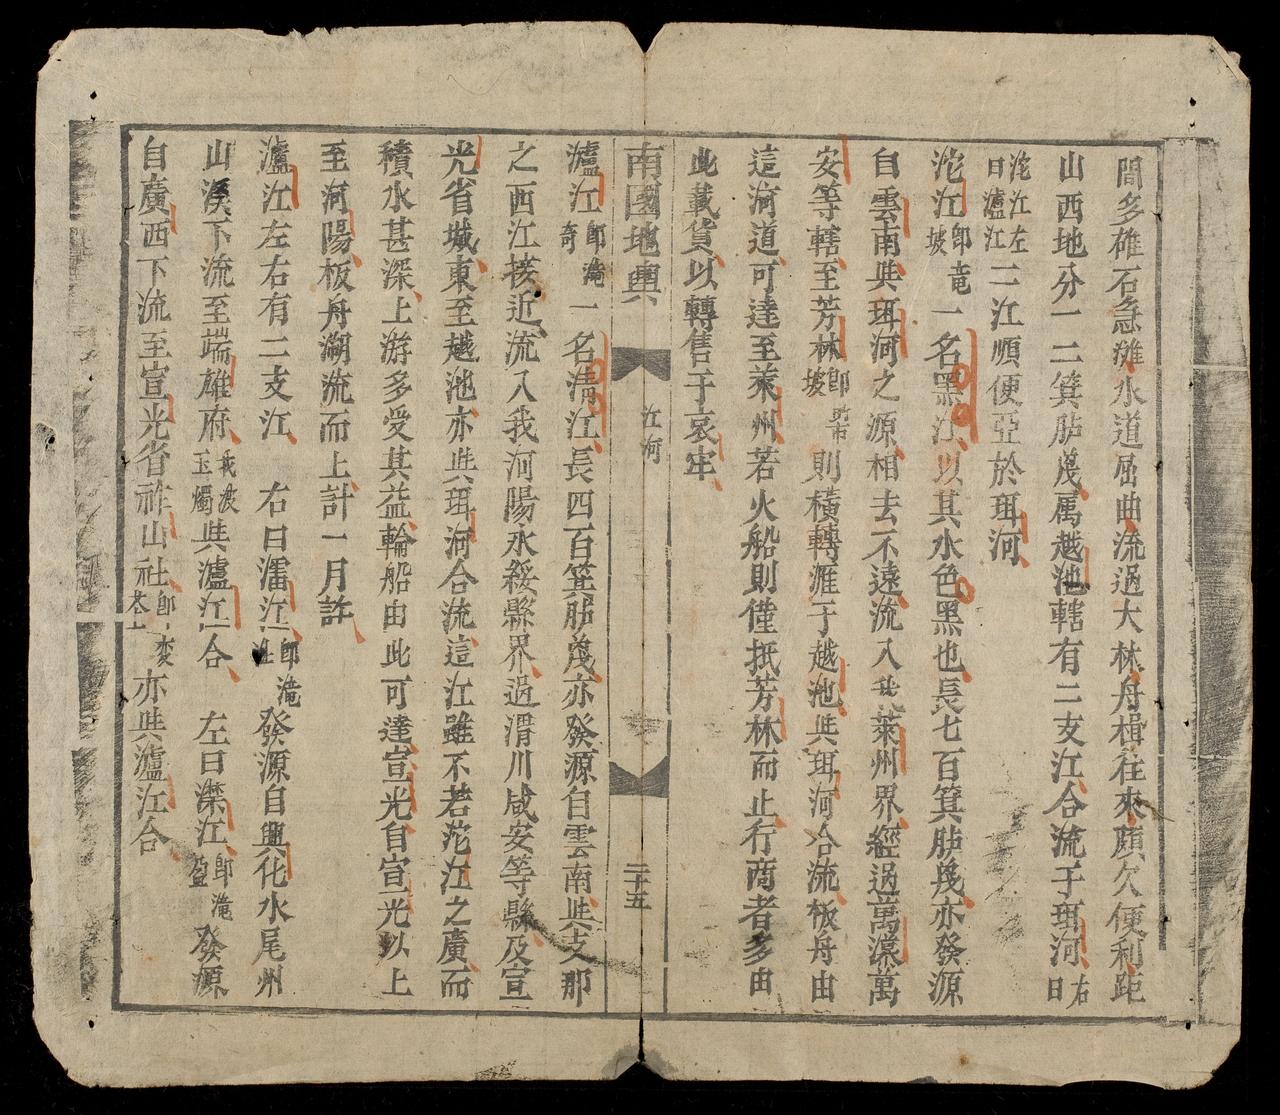 間多碓石急灘水道屈曲流過大林舟楫往來頗欠便利距
山西地分一二箕胪幾属越池轄有二支江合流于珥河右曰
沱江左曰瀘江二江順便亞於珥河
沱江即竜坡一名黑江以其水色黑也長七百箕胪幾亦發源
自雲南與珥河之源相去不遠流入我萊州界經過萬濛萬
安等轄至芳林坡則橫轉滙于越池與珥河合流板舟由
這河道可達至萊州若火船則僅抵芳林而止行商者多由
此載貨以轉售于哀牢
南國地輿
江河
二十五
瀘江即滝奇一名淸江長四百箕胪幾亦發源自雲南與支那
之西江接近流入我河陽永綏縣界過渭川咸安等縣及宣
光省城東至越池亦與珥河合流這江雖不若沱江之廣而
積水甚深上游多受其益輪船由此可達宣光自宣光以上
至河陽板舟溯流而上計一月許
瀘江左右有二支江 右曰濡江即滝 發源自興化水尾州
山溪下流至端雄府我波玉燭與瀘江合 左曰灤江即滝盈發源
自廣西下流至宣光省祚山社即 亦與瀘江合